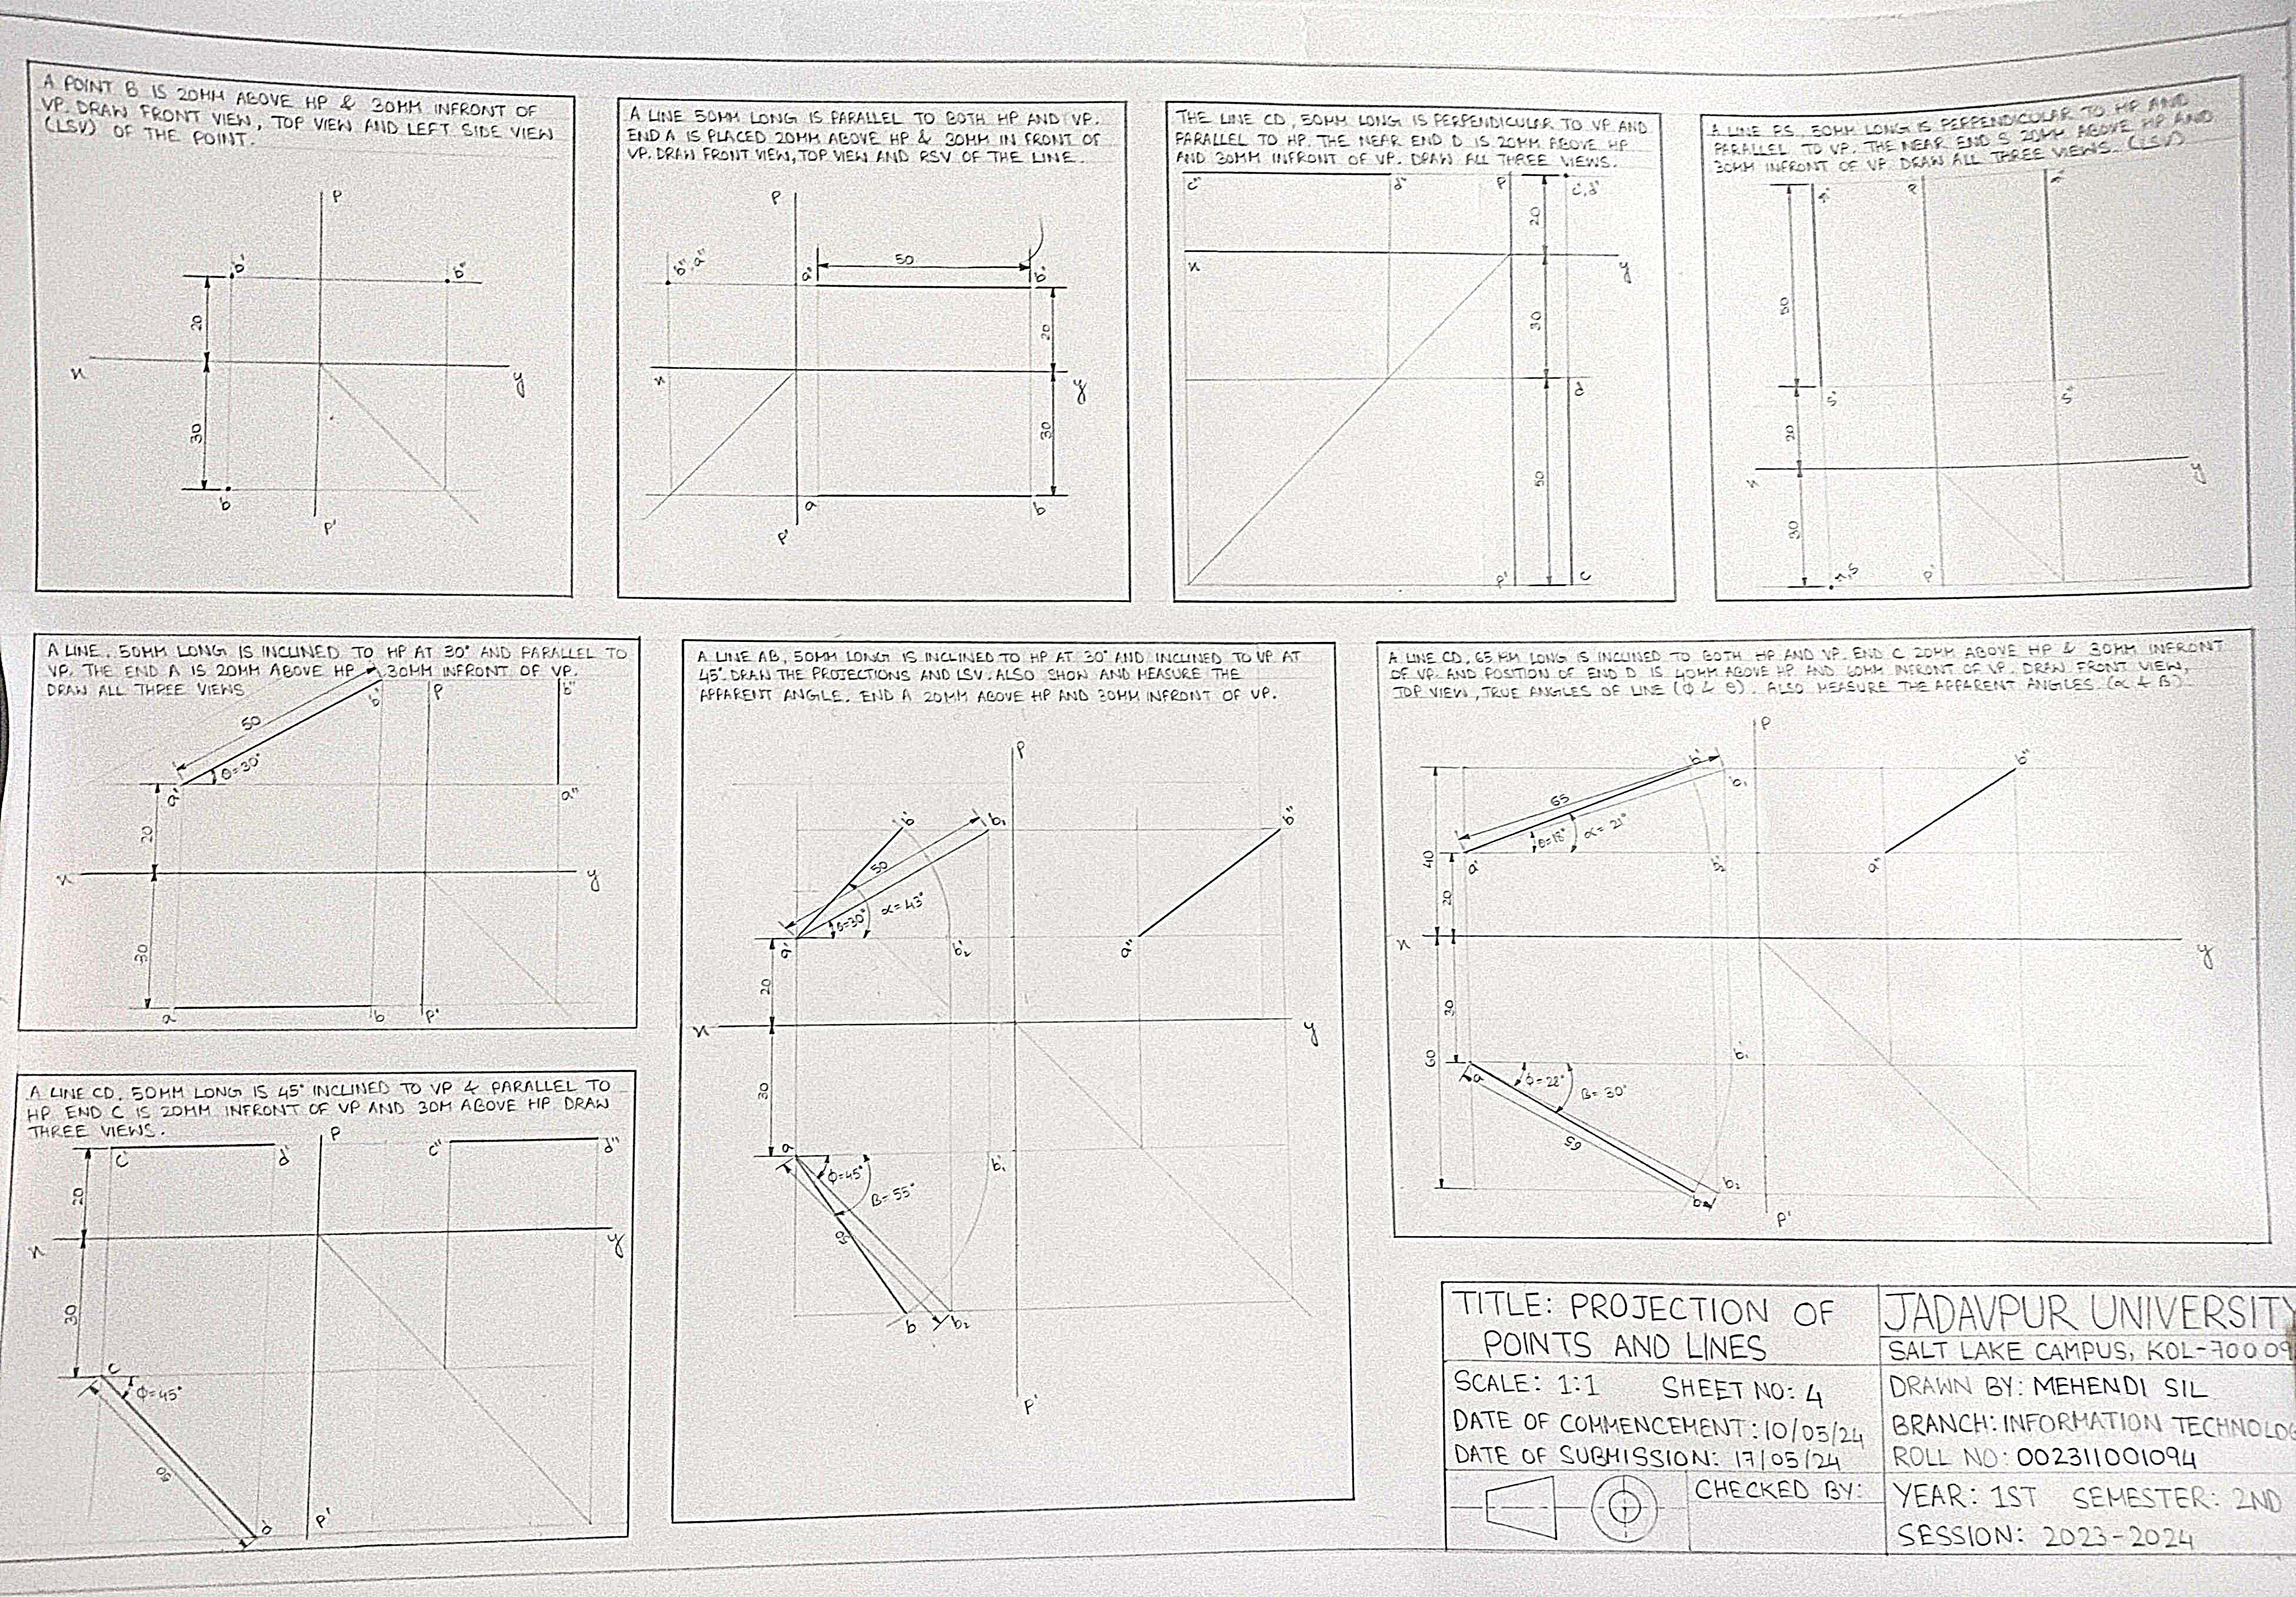 A POINT B IS 20MM ABOVE HP & 30MM INFRONT OF
VP. DRAW FRONT VIEW, TOP VIEW AND LEFT SIDE VIEW
(LSV) OF THE POINT.
P
b' b"
20
x y
30
b
P'
A LINE 50MM LONG IS PARALLEL TO BOTH HP AND VP.
END A IS PLACED 20MM ABOVE HP & 30MM IN FRONT OF
VP. DRAW FRONT VIEW, TOP VIEW AND RSV OF THE LINE.
P
b", a" a' 50 b'
20
x y
30
a b
P'
THE LINE CD, 50MM LONG IS PERPENDICULAR TO VP AND
PARALLEL TO HP. THE NEAR END D IS 20MM ABOVE HP
AND 30MM INFRONT OF VP. DRAW ALL THREE VIEWS.
c" d" P c', d'
20
x y
30
d
50
P' c
A LINE RS, 50MM LONG IS PERPENDICULAR TO HP AND
PARALLEL TO VP. THE NEAR END S 20MM ABOVE HP AND
30MM INFRONT OF VP. DRAW ALL THREE VIEWS. (LSV)
r' P r"
50
s' s"
20
x y
30
r,s P'
A LINE, 50MM LONG IS INCLINED TO HP AT 30° AND PARALLEL TO
VP. THE END A IS 20MM ABOVE HP 30MM INFRONT OF VP.
DRAW ALL THREE VIEWS
b' P b"
50
θ=30°
a' a"
20
x y
30
a b P'
A LINE AB, 50MM LONG IS INCLINED TO HP AT 30° AND INCLINED TO VP AT
45°. DRAW THE PROJECTIONS AND LSV. ALSO SHOW AND MEASURE THE
APPARENT ANGLE. END A 20MM ABOVE HP AND 30MM INFRONT OF VP.
P
b' b₁ b"
50
θ=30° α=43°
a' b₂' a"
20
x y
30
a b₁'
φ=45°
β=55°
50
b b₂
P'
A LINE CD, 65 MM LONG IS INCLINED TO BOTH HP AND VP. END C 20MM ABOVE HP & 30MM INFRONT
OF VP. AND POSITION OF END D IS 40MM ABOVE HP AND 60MM INFRONT OF VP. DRAW FRONT VIEW,
TOP VIEW, TRUE ANGLES OF LINE (φ & θ). ALSO MEASURE THE APPARENT ANGLES. (α & β)
P
b' b₁ b"
65
θ=18° α=21°
40 a' b₂' a"
20
x y
30
60 a b₁'
φ=28° β=30°
65
b b₂
P'
A LINE CD, 50MM LONG IS 45° INCLINED TO VP & PARALLEL TO
HP. END C IS 20MM INFRONT OF VP AND 30M ABOVE HP. DRAW
THREE VIEWS.
c' d' P c" d"
20
x y
30
c
φ=45°
50
d P'
TITLE: PROJECTION OF
POINTS AND LINES
SCALE: 1:1 SHEET NO: 4
DATE OF COMMENCEMENT: 10/05/24
DATE OF SUBMISSION: 17/05/24
CHECKED BY:
JADAVPUR UNIVERSITY
SALT LAKE CAMPUS, KOL-70009
DRAWN BY: MEHENDI SIL
BRANCH: INFORMATION TECHNOLOG
ROLL NO: 002311001094
YEAR: 1ST SEMESTER: 2ND
SESSION: 2023-2024